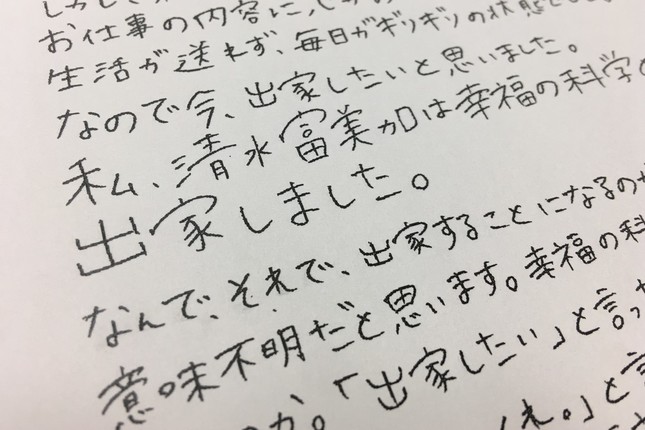 お仕事の内容に、
生活が送れず、毎日がギリギリの状態
なので今、出家したいと思いました。
私、清水富美加は幸福の科学の
出家しました。
なんで、それで、出家することになるのか
意味不明だと思います。幸福の科
か。「出家したい」と言っ
ね。」と言